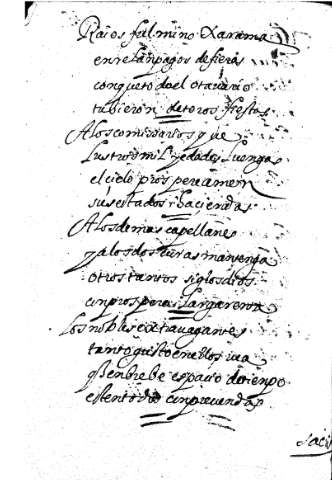 Raios fulmino Xarama
en relanpagos de fieras
con que todo el otauario
tubieron de toros fiestas
A los comisarios que
Lustros mil y edades Luengas
el cielo prospere amen
sus estados i haciendas
A los demas capellanes
y a los dos curas mantenga
otros tantos siglos dios
con prospera Larga renta
Los nobles extrauagantes
tanto gusto en ellos
q en brebe espacio de tienpo
esten todo con preuendas